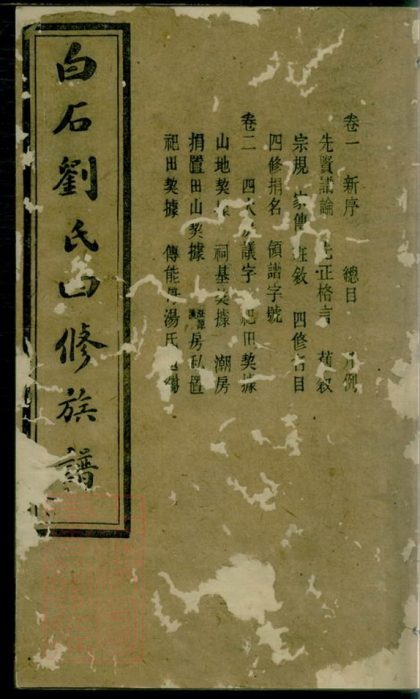 卷一 新序 總目 凡例
先賢譜論 先正格言 舊敘
宗規 家傳 敘 四修名目
四修捐名 領譜字號
卷二 四大 議字 祀田契據
山地契據 祠基契據 潮房
捐置田山契據 房私置
祀田契據 傳能 湯氏
白石劉氏四修族譜